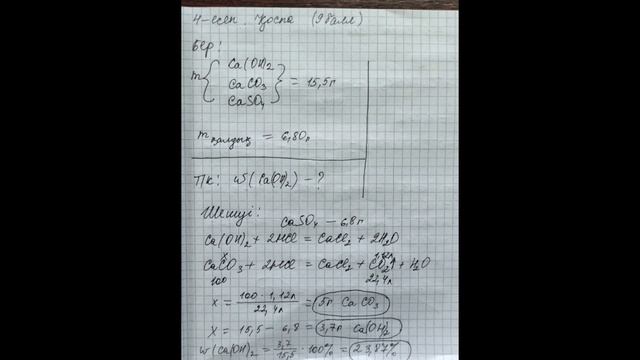 4-есеп. Қоспа (9 балл)
Бер:
m { Ca(OH)₂
CaCO₃
CaSO₄ } = 15,5г
m қалдық = 6,80г
Т.к: ω(Ca(OH)₂) - ?
Шешуі:
CaSO₄ - 6,8г
Ca(OH)₂ + 2HCl = CaCl₂ + 2H₂O
x 1,12л
CaCO₃ + 2HCl = CaCl₂ + CO₂↑ + H₂O
100 22,4л
x = 100 · 1,12л / 22,4л = 5г CaCO₃
x = 15,5 - 6,8 = 3,7г Ca(OH)₂
w(Ca(OH)₂ = 3,7 / 15,5 · 100% = 23,87%